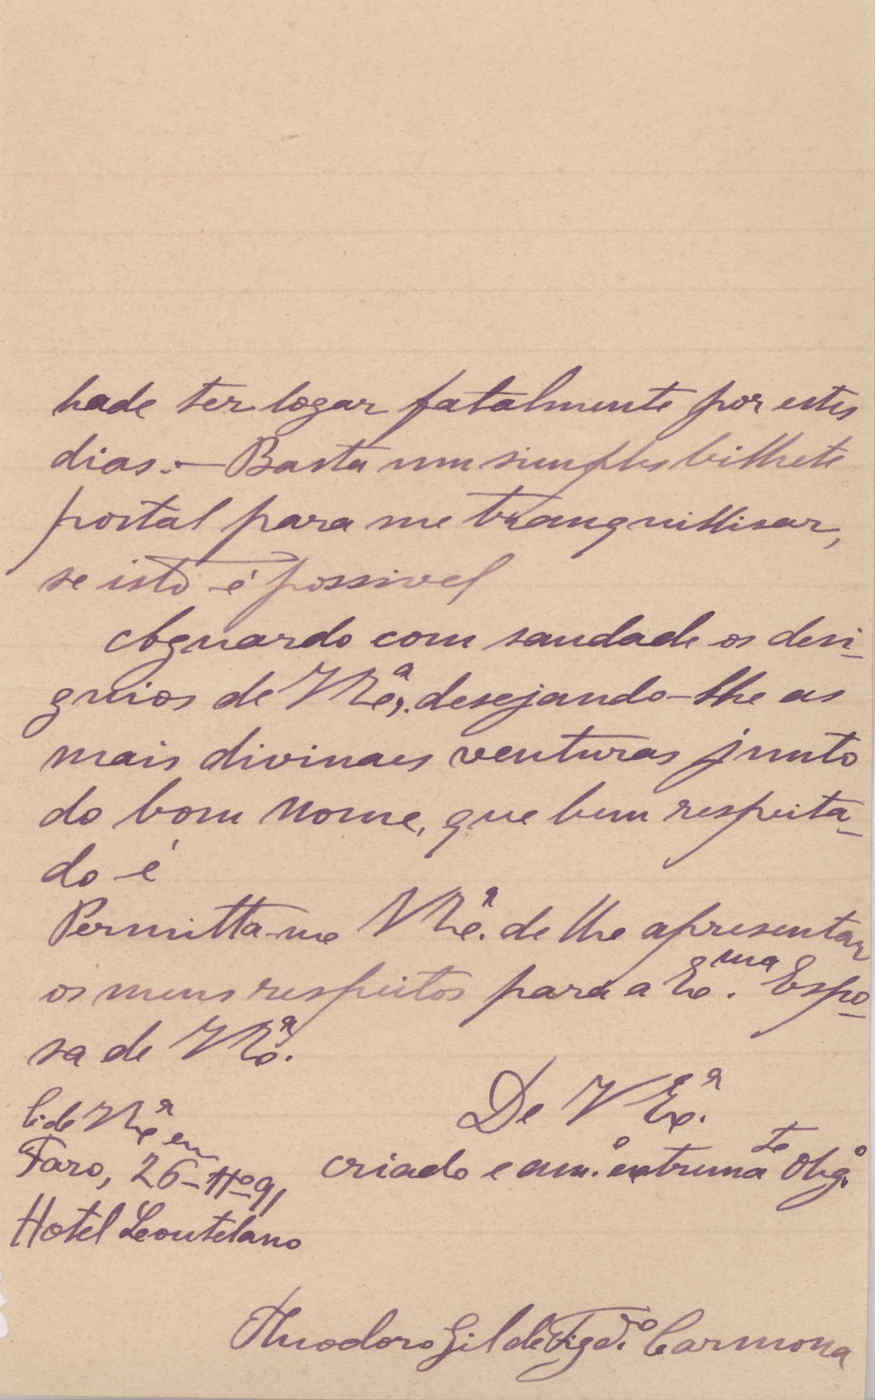 hade ter logar fatalmente por estes
dias. — Basta um simples bilhete
postal para me tranquillisar,
se isto é possivel
Aguardo com saudade os desi-
gnios de V Exª, desejando-lhe as
mais divinaes venturas junto
do bom nome, que bem respeita-
do é
Permitta-me V Exª. de lhe apresentar
os meus respeitos para a Exma. Espo-
sa de V Exª.
De V Exª.
C. de V Exª em
Faro, 26-11º-91
criado e amº. extremate Obgº.
Hotel
Theodoro Gil de Figdº. Carmona